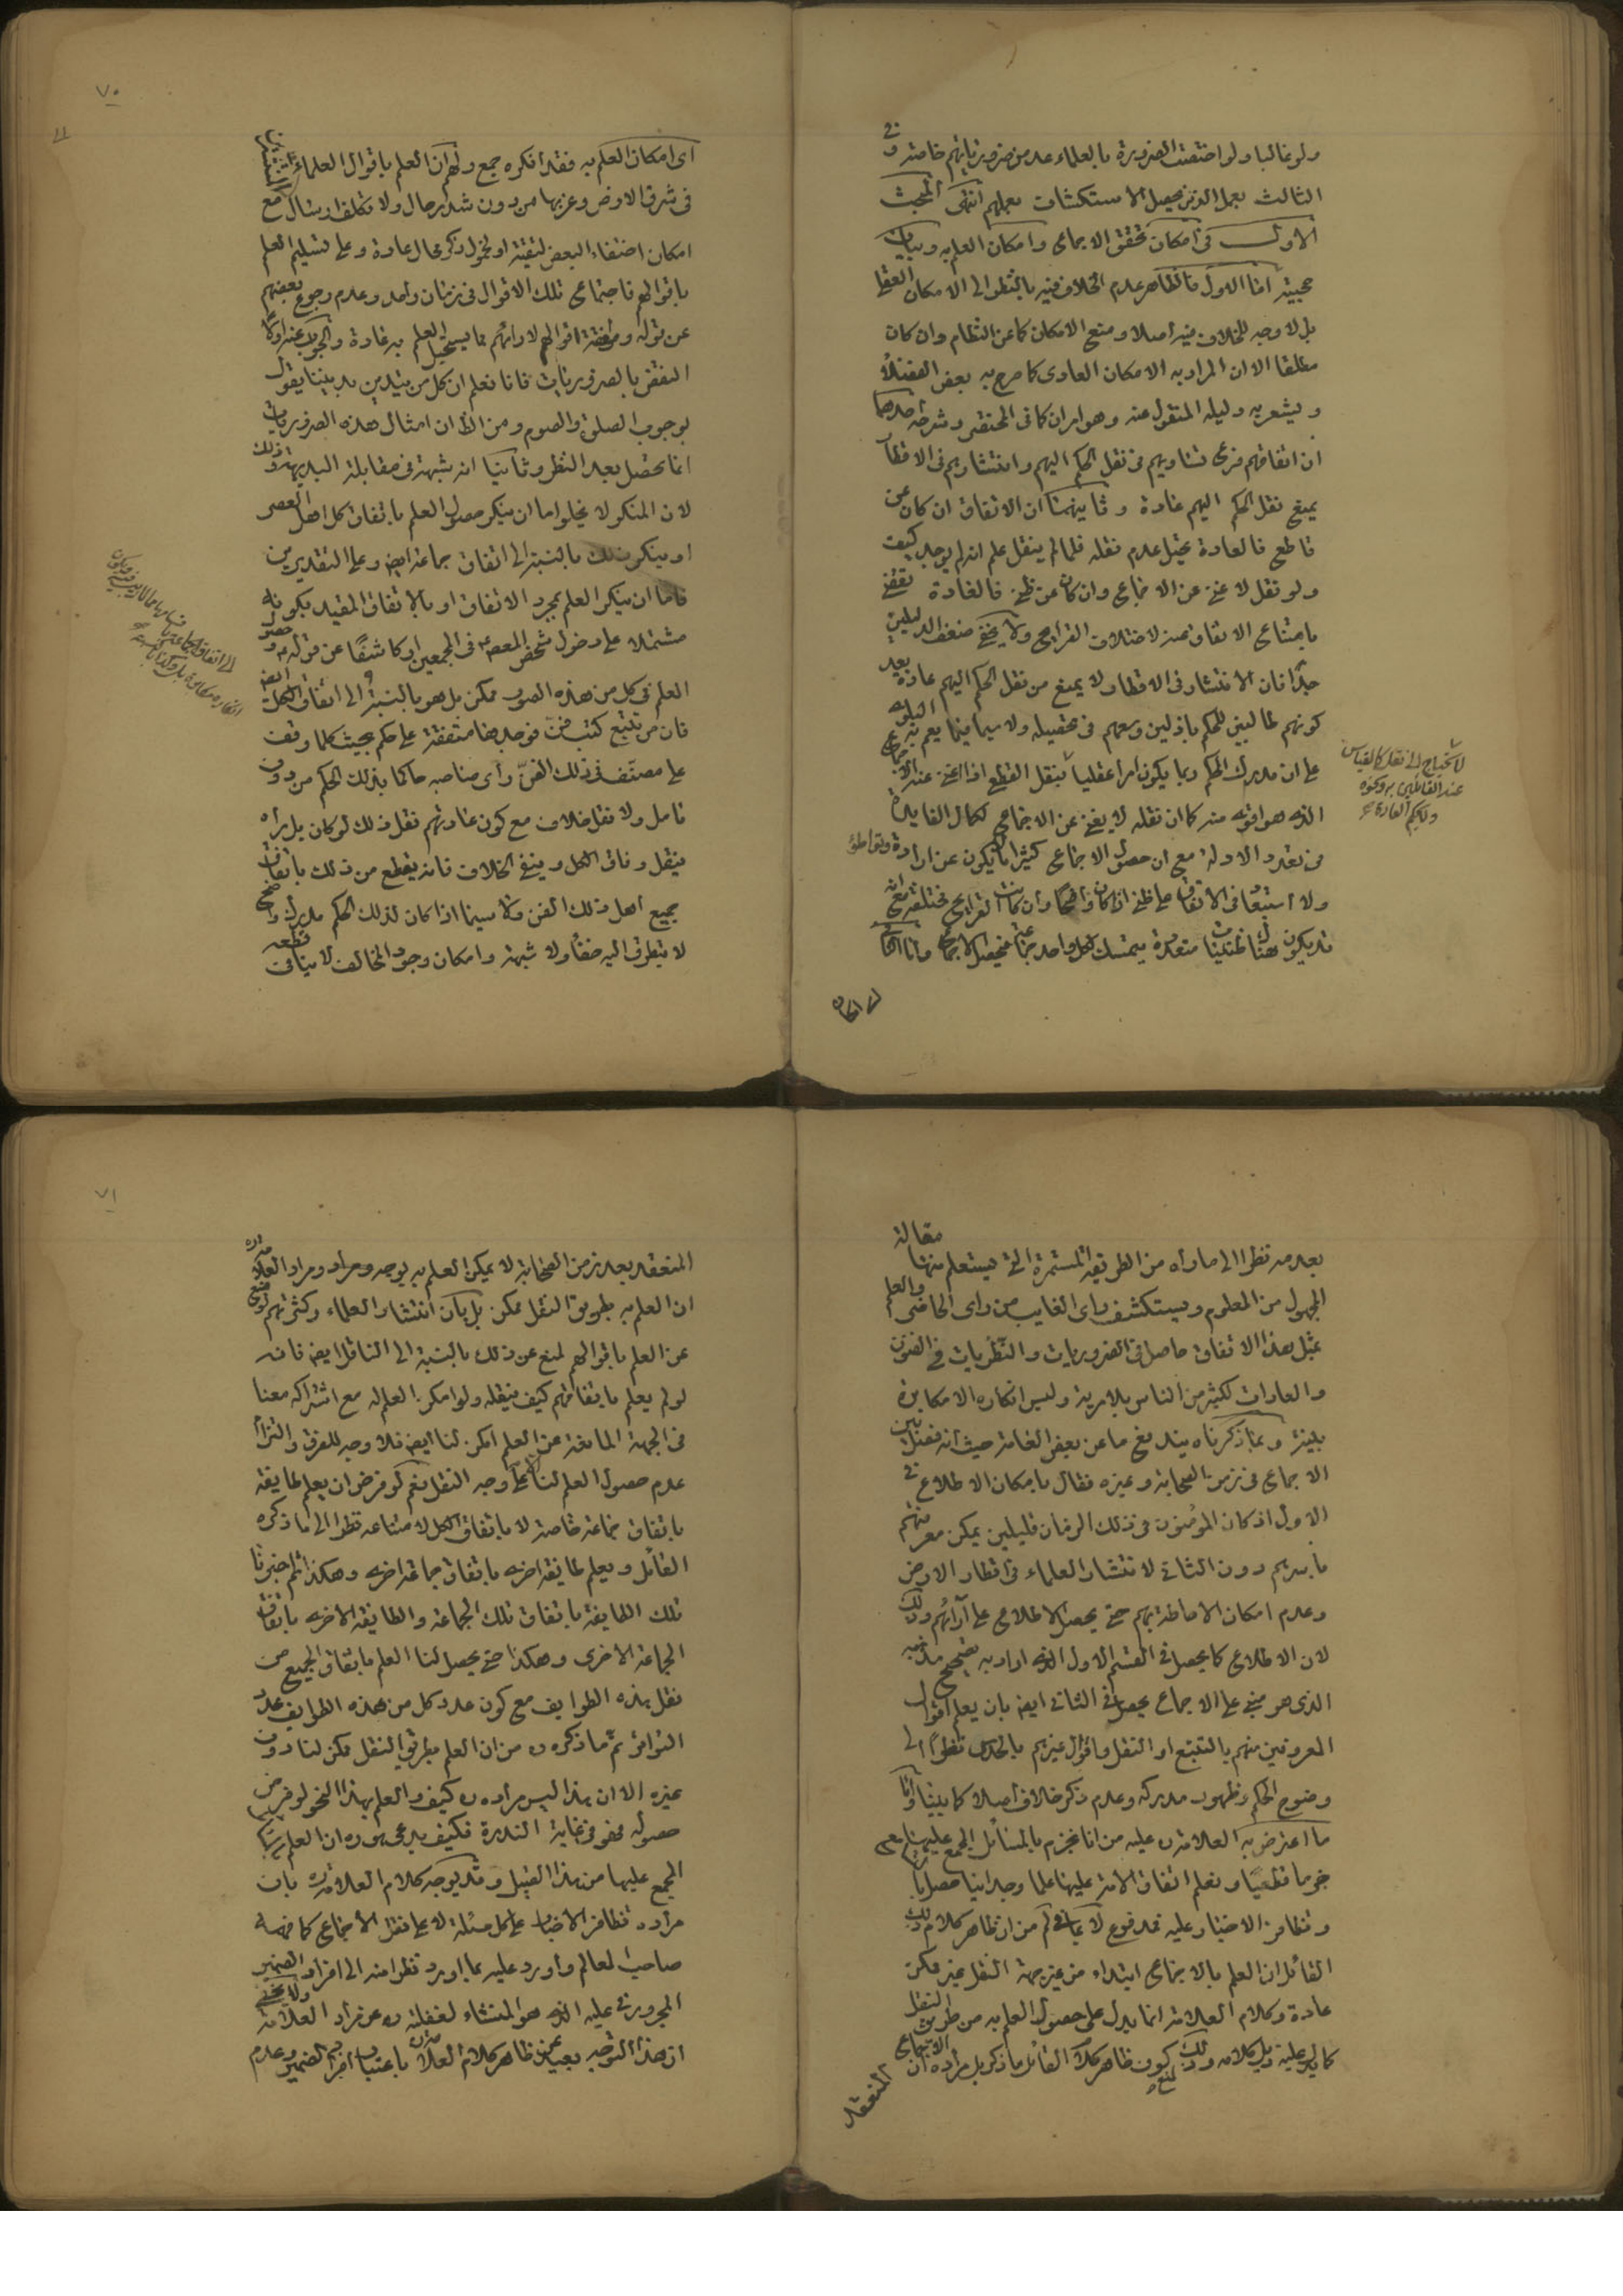 ولو غالبا ولو اختفت الضرورة بالعلماء عد من ضرورياتهم خاصة وفي
الثالث بعمل الذين يحصل الاستكشاف بعملهم انتهى المبحث
الاول في امكان تحقق الاجماع وامكان العلم به وبيان
حجيته اما الاول فالظاهر عدم الخلاف فيه بالنظر الى الامكان العقلي
بل لا وجه للخلاف فيه اصلا ومنع الامكان كما عن النظام وان كان
مطلقا الا ان المراد به الامكان العادي كما صرح به بعض الفضلاء
ويشعر به دليله المنقول عنه وهو امران كما في المختصر وشرحه احدهما
ان اتفاقهم فرع تساويهم في نقل الحكم اليهم وانتشارهم في الاقطار
يمنع نقل الحكم اليهم عادة وثانيهما ان الاتفاق ان كان عن
قاطع فالعادة تحيل عدم نقله فلما لم ينقل علم انه لم يوجد كيف
ولو نقل لاغنى عن الاجماع وان كان عن ظني فالعادة تقضي
بامتناع الاتفاق عنه لاختلاف القرايح ولا يخفى ضعف الدليلين
جدا فان الانتشار في الاقطار لا يمنع من نقل الحكم اليهم عادة بعد
كونهم طالبين للحكم باذلين وسعهم في تحصيله ولا سيما فيما يعم به البلوى
على ان مدرك الحكم ربما يكون امرا عقليا ونقل القطع اذا اغنى عنه الاجماع
الذي هو اقوى منه كما ان نقله لا يغني عن الاجماع لكمال الفايدة
في تعدد الادلة مع ان حصول الاجماع كثيرا ما يكون عن ارادة وتواطؤ
ولا استبعاد في الاتفاق على ظني اذا كان واضحا وان كانت القرايح مختلفة مع انه
قد يكون هنا ظنيات متعددة يتمسك بكل واحد جماعة فيحصل الاجماع واما الثاني
لا يحتاج الى نقل كالقياس
عند القائلين به ونحوه
اي امكان
اي امكان العلم به فقد انكره جمع ولهم ان العلم باقوال العلماء المنتشرين
في شرق الارض وغربها من دون شد رحال ولا تكلف ارسال مع
امكان اختفاء البعض لتقية او لخمول ذكر محال عادة وعلى تسليم العلم
باقوالهم فاجتماع تلك الاقوال في زمان واحد وعدم رجوع بعضهم
عن قوله وموافقة اقوالهم لارائهم مما يستحيل العلم به عادة والجواب عنه اولا
النقض بالضروريات فانا نعلم ان كل من يتدين بديننا يقول
بوجوب الصلوة والصوم ومن الظ ان امثال هذه الضروريات
انما تحصل بعد النظر وثانيا انه شبهة في مقابلة البديهة وذلك
لان المنكر لا يخلوا اما ان ينكر حصول العلم باتفاق كل اهل العصر
او ينكر ذلك بالنسبة الى اتفاق جماعة ايض وعلى التقديرين
فاما ان ينكر العلم بمجرد الاتفاق او بالاتفاق المقيد بكونه
مشتملا على دخول شخص المعصوم في المجمعين او كاشفا عن قوله وحصول
العلم في كل من هذه الصور ممكن بل هو بالنسبة الى اتفاق الكل ايض
فان من تتبع كتب فن فوجدها متفقة على حكم بحيث كلما وقف
على مصنف في ذلك الفن رأى صاحبه حاكما بذلك الحكم من دون
تامل ولا نقل خلاف مع كون عادتهم نقل ذلك لو كان بل يراه
ينقل وفاق الكل وينفي الخلاف فانه يقطع من ذلك باتفاق
جميع اهل ذلك الفن ولا سيما اذا كان لذلك الحكم مدرك واضح
لا يتطرق اليه خفاء ولا شبهة وامكان وجود المخالف لا ينافي قطعه
٧٠
بعدمه نظرا الى ما رآه من الطريقة المستمرة التي يستعلم منها مقالة
المجهول من المعلوم ويستكشف راى الغايب من راى الحاضر والعلم
بمثل هذا الاتفاق حاصل في الضروريات والنظريات في الفنون
والعادات لكثير من الناس بلا مرية وليس انكاره الا مكابرة
بينة وبما ذكرناه يندفع ما عن بعض العامة حيث انه فصل بين
الاجماع في زمن الصحابة وغيره فقال بامكان الاطلاع في
الاول اذ كان المؤمنون في ذلك الزمان قليلين يمكن معرفتهم
باسرهم دون الثاني لانتشار العلماء في اقطار الارض
وعدم امكان الاحاطة بهم حتى يحصل الاطلاع على آرائهم وذلك
لان الاطلاع كما يحصل في القسم الاول الذي اراد به تصحيح مذهبه
الذي هو مبني على الاجماع يحصل في الثاني ايض بان يعلم اقوال
المعروفين منهم بالتتبع او النقل واقوال غيرهم بالحدس نظرا الى
وضوح الحكم وظهور مدركه وعدم ذكر خلاف اصلا كما بينا واما
ما اعترض به العلامة ره عليه من انا نجزم بالمسائل المجمع عليها
جزما قطعيا ونعلم اتفاق الامة عليها علما وجدانيا حصل بالتسامع
وتظافر الاخبار عليه فمدفوع لا بما في لم من ان ظاهر كلام ذلك
القائل ان العلم بالاجماع ابتداء من غير جهة النقل غير ممكن
عادة وكلام العلامة انما يدل على حصول العلم به من طريق النقل
كما يدل عليه ذيل كلامه وذلك لمنع كون ظاهر كلام القائل ما ذكر بل مراده ان الاجماع
المنعقد
المنعقد بعد زمن الصحابة لا يمكن العلم به بوجه ومراده ومراد العلامة ره
ان العلم به بطريق النقل ممكن بل بان انتشار العلماء وكثرتهم لو منع
عن العلم باقوالهم لمنع عن ذلك بالنسبة الى الناقل ايض فانه
لو لم يعلم باتفاقهم كيف ينقله ولو امكن العلم له مع اشتراكه معنا
في الجهة المانعة عن العلم امكن لنا ايض فلا وجه للفرق والتزام
عدم حصول العلم لنا الا على وجه النقل نعم لو فرض ان يعلم طايفة
باتفاق جماعة خاصة لا باتفاق الكل لامتناعه نظرا الى ما ذكره
القائل ويعلم طايفة اخرى باتفاق جماعة اخرى وهكذا ثم اخبرنا
تلك الطايفة باتفاق تلك الجماعة والطايفة الاخرى باتفاق
الجماعة الاخرى وهكذا حتى يحصل لنا العلم باتفاق الجميع من
نقل هذه الطوايف مع كون عدد كل من هذه الطوايف عدد
التواتر تم ما ذكره ره من ان العلم بطريق النقل ممكن لنا دون
غيره الا ان هذا ليس مراده ره كيف والعلم بهذا النحو لو فرض
حصوله فهو في غاية الندرة فكيف يدعي هو ره ان العلم بالمسائل
المجمع عليها من هذا القبيل وقد يوجه كلام العلامة ره بان
مراده تظافر الاخبار على كل مسئلة لا على نقل الاجماع كما فهمه
صاحب المعالم واورد عليه بما اورد نظرا منه الى افراد الضمير
المجرور في عليه الذي هو المنشاء لغفلته ره عن مراد العلامة ولا يخفى
ان هذا التوجيه بعيد عن ظاهر كلام العلامة ره باعتبار افراد الضمير وعدم
٧١